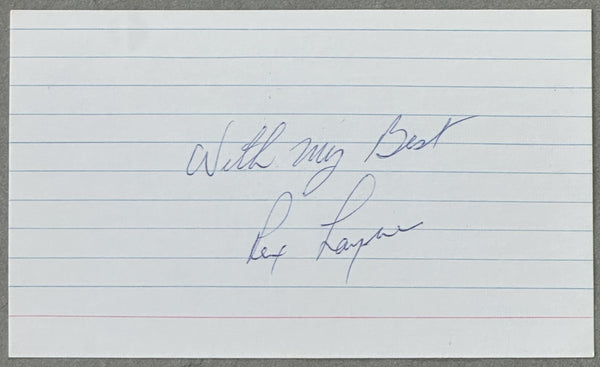 With my Best
Rex Layne